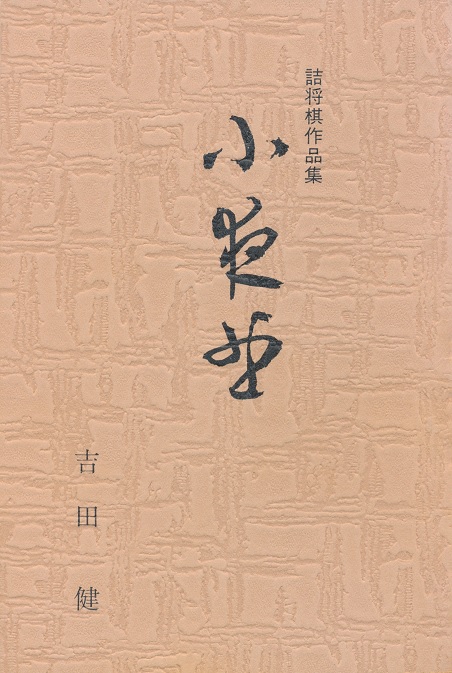 詰将棋作品集
小夜曲
吉田健